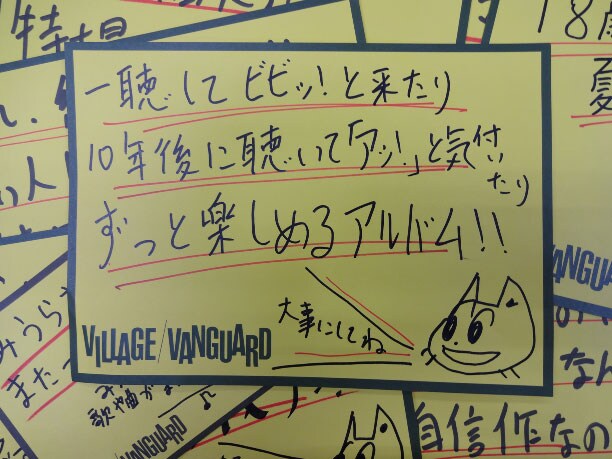 一聴してビビッ!と来たり
10年後に聴いて「アッ!」と気付いたり
ずっと楽しめるアルバム!!
大事にしてね
VILLAGE/VANGUARD
18歳
夏
い人
みうら
また
歌や曲が
VANGUARD
VANGU
なん
自信作なの